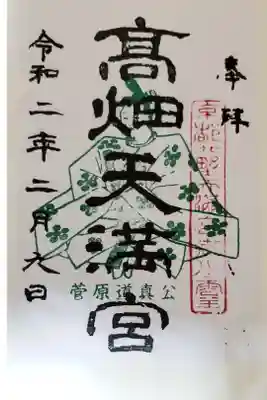 奉拝
高畑天満宮
菅原道真公
令和二年二月九日